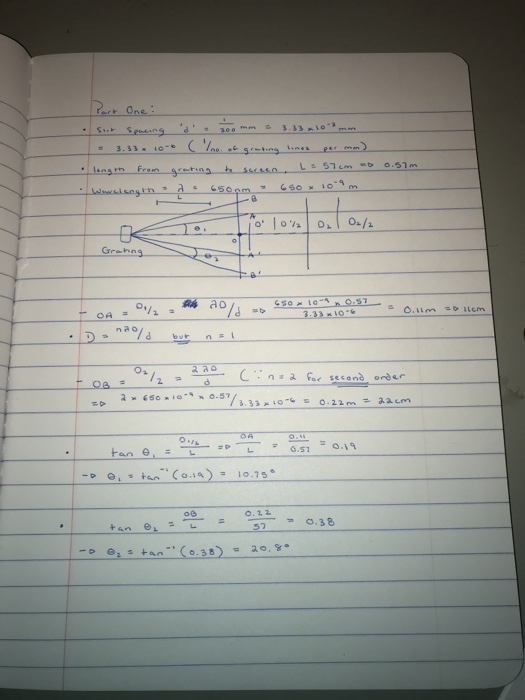 Part One:
• Slit Spacing 'd' = 1/300 mm = 3.33 x 10⁻³ mm
= 3.33 x 10⁻⁶ (1/no. of grating lines per mm)
• length from grating to screen, L = 57cm => 0.57m
• Wavelength = λ = 650nm = 650 x 10⁻⁹ m
L
B
A
θ₁ O O' | O'/2 | O₂ | O₂/2
Grating θ₂ A'
B'
- OA = O₁/2 = λD/d => 650 x 10⁻⁹ x 0.57 / 3.33 x 10⁻⁶ = 0.11m => 11cm
• D = nλD/d but n = 1
- OB = O₂/2 = 2λD/d (∵ n = 2 for second order
=> 2 x 650 x 10⁻⁹ x 0.57/3.33 x 10⁻⁶ = 0.22m = 22cm
• tan θ₁ = O₁/2 / L => OA/L = 0.11/0.57 = 0.19
-> θ₁ = tan⁻¹ (0.19) = 10.75°
• tan θ₂ = OB/L = 0.22/57 = 0.38
-> θ₂ = tan⁻¹ (0.38) = 20.8°